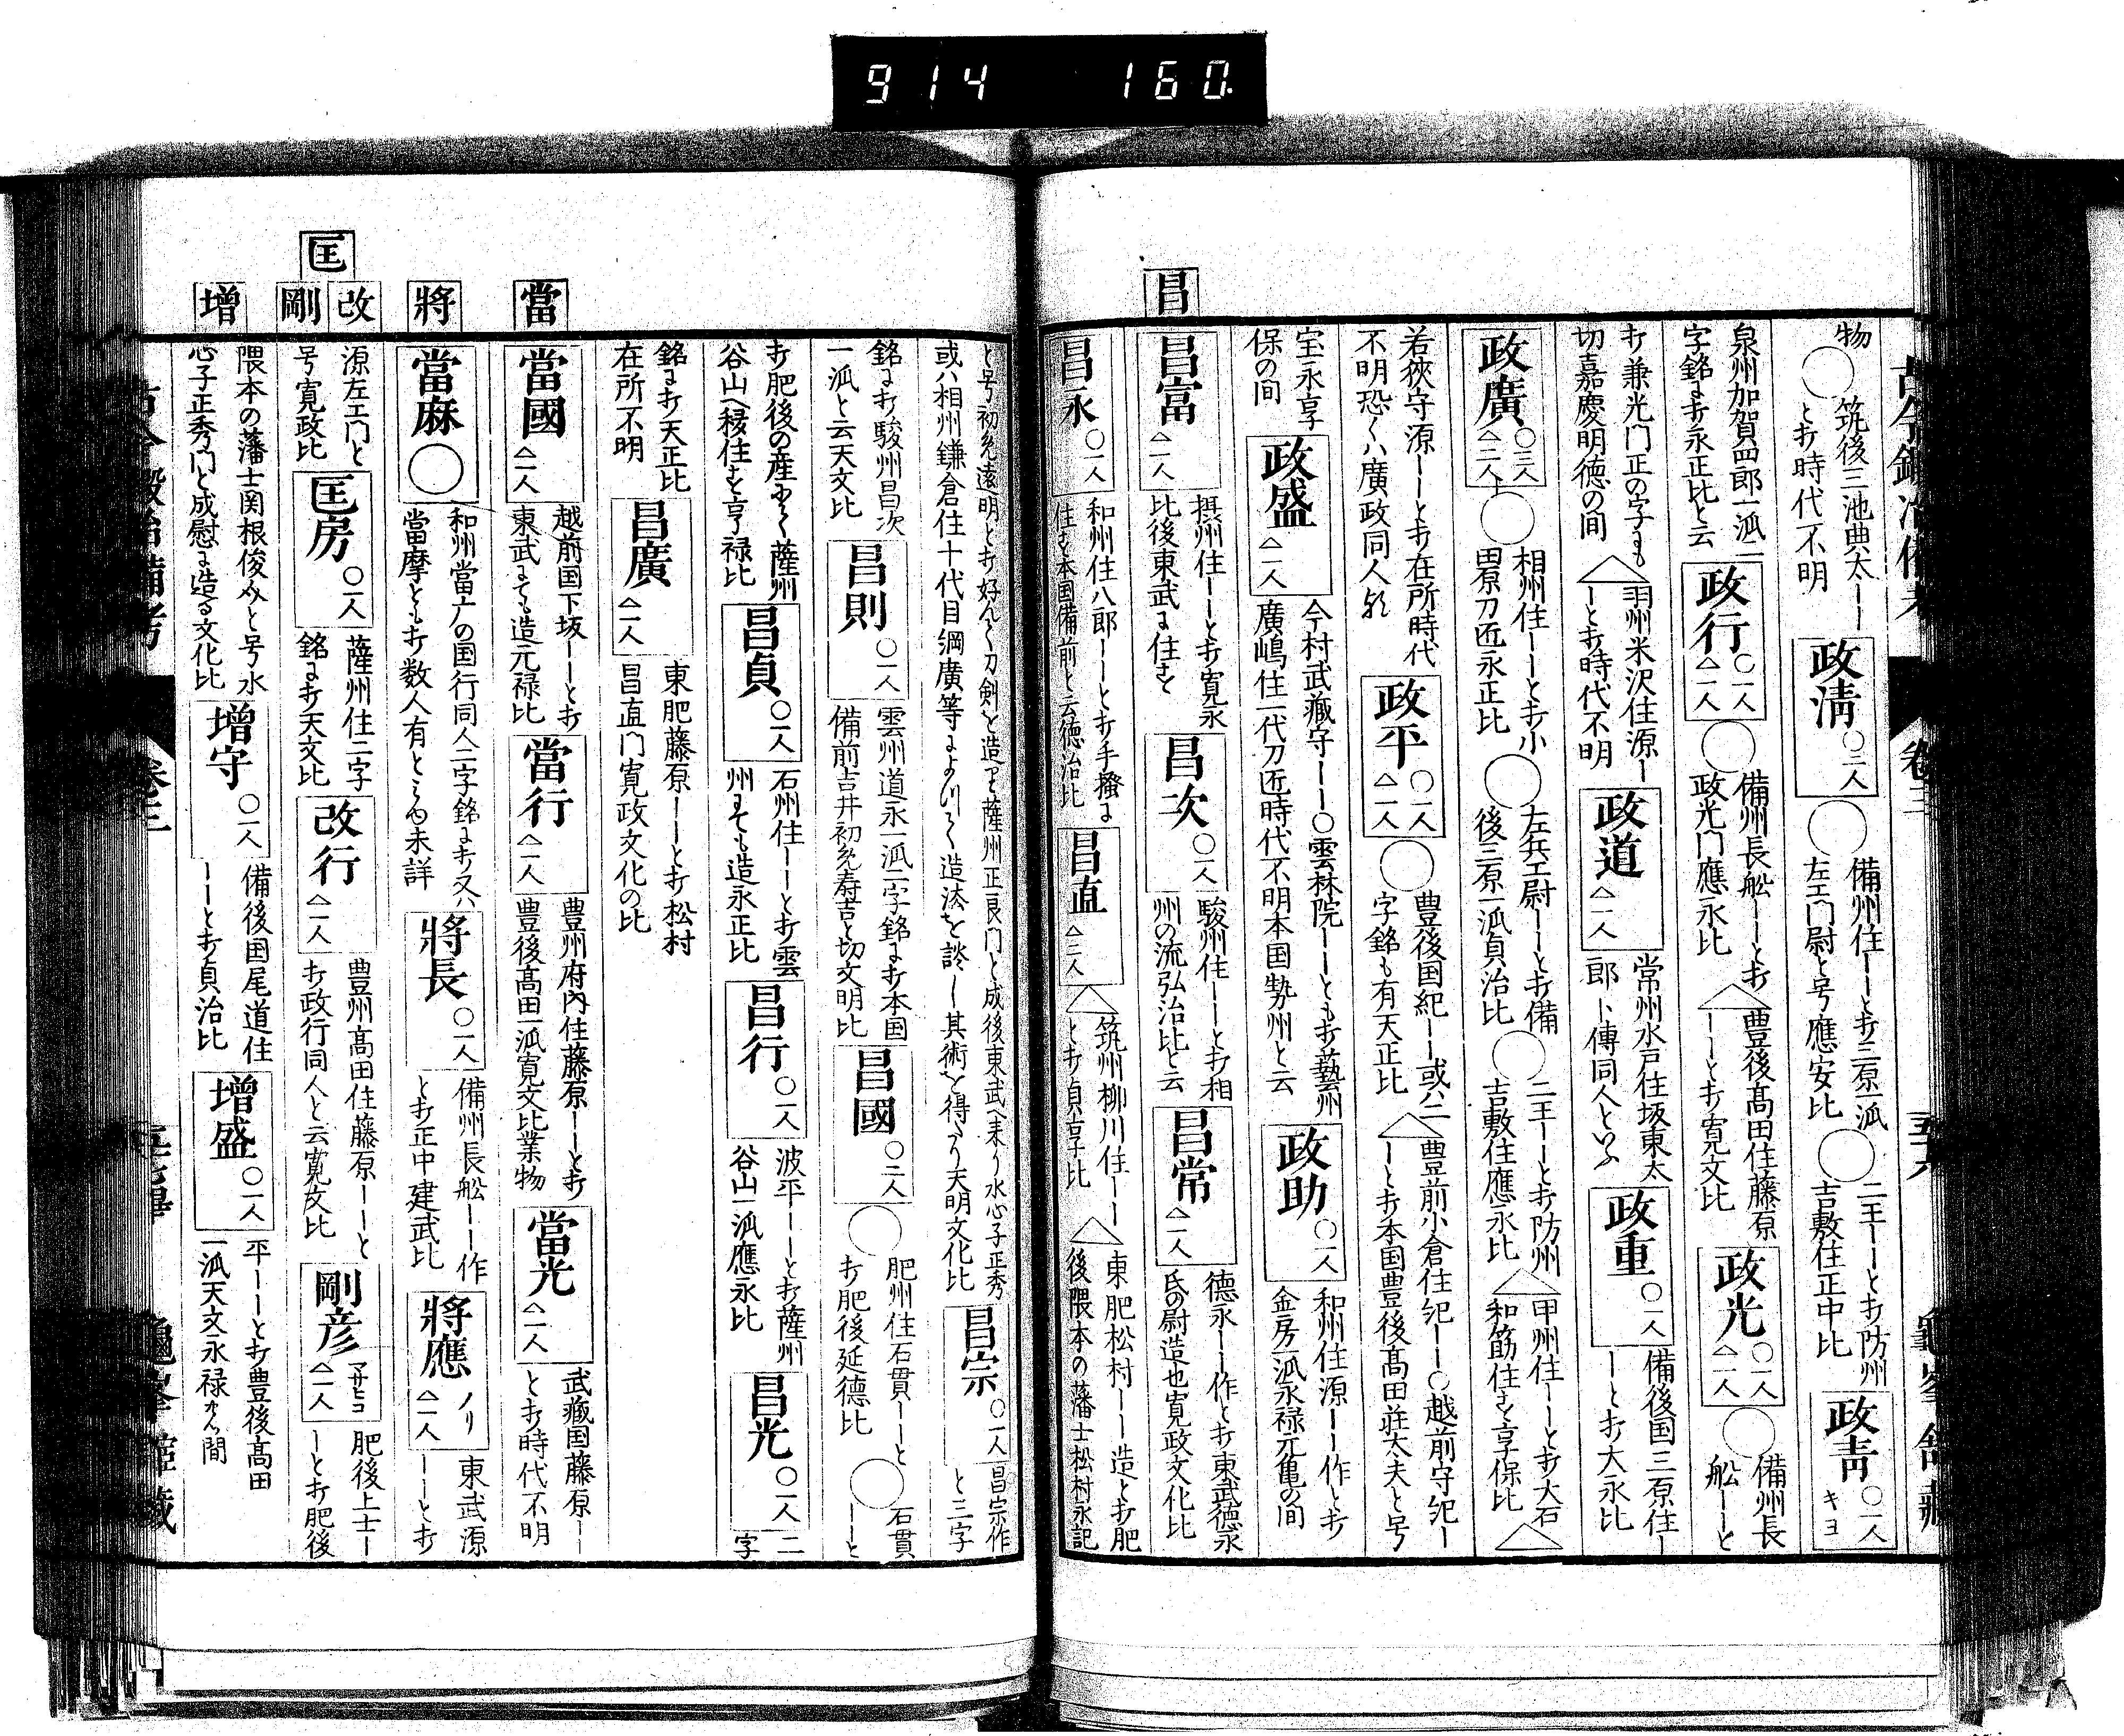 914 160
古今鍛冶備考
卷三
昌
物
○筑後三池典太ーー
と打時代不明
政清 ○三人
○備州住ーーと打三原一派
左エ門尉と号應安比
○二王ーーと打防州
吉敷住正中比
政青 ○一人 キヨ
泉州加賀四郎一派二
字銘に打永正比と云
政行 ○一人 △一人
○備州長船ーーと打
政光門應永比
△豊後髙田住藤原
ーーと打寛文比
政光 ○一人 △一人
○備州長
船ーーと
打兼光門正の字にも
切嘉慶明徳の間
△羽州米沢住源ー
ーと打時代不明
政道 △一人
常州水戸住坂東太
郎卜傳同人といふ
政重 ○一人
備後国三原住ー
ーと打大永比
政廣 ○三人 △三人
○相州住ーーと打小
田原刀匠永正比
○左兵エ尉ーーと打備
後三原一派貞治比
○二王ーーと打防州
吉敷住應永比
△甲州住ーーと打大石
和筋住す享保比
△
若狹守源ーーと打在所時代
不明恐くハ廣政同人歟
政平 ○一人 △二人
○豊後国紀ーー或ハ二
字銘も有天正比
△豊前小倉住紀ーー○越前守紀ー
ーと打本国豊後髙田荘太夫と号
宝永享
保の间
政盛 △二人
今村武蔵守ーー○雲林院ーーとも打藝州
廣嶋住一代刀匠時代不明本国勢州と云
政助 ○一人
和州住源ーー作と打
金房一派永禄元亀の间
昌富 △一人
摂州住ーーと打寛永
比後東武に住す
昌次 ○一人
駿州住ーーと打相
州の流弘治比と云
昌常 △一人
徳永ーー作と打東武徳永
氏の尉造也寛政文化比
昌永 ○一人
和州住八郎ーーと打手搔に
住す本国備前と云徳治比
昌直 △三人
△筑州柳川住ーー
と打貞享比
△東肥松村ーー造と打肥
後隈本の藩士松村永記
當
將
改
匡
剛
增
と号初名遠明と打好んで刀剣を造り薩州正良門と成後東武へ来り水心子正秀
或ハ相州鎌倉住十代目綱廣等によりて造法を談し其術を得たり天明文化比
昌宗 ○一人
昌宗作
と三字
銘に打駿州昌次
一派と云天文比
昌則 ○一人
雲州道永一派二字銘に打本国
備前吉井初名寿吉と切文明比
昌國 ○二人
○肥州住石貫ーーと
打肥後延德比
○石貫
ーーと
打肥後の産にて薩州
谷山へ移住す亨禄比
昌貞 ○一人
石州住ーーと打雲
州にても造永正比
昌行 ○一人
波平ーーと打薩州
谷山一派應永比
昌光 ○一人
二
字
銘に打天正比
在所不明
昌廣 △一人
東肥藤原ーーと打松村
昌直門寛政文化の比
當國 △一人
越前国下坂ーーと打
東武にても造元禄比
當行 △一人
豊州府内住藤原ーーと打
豊後髙田一派寛文比業物
當光 △一人
武蔵国藤原ー
と打時代不明
當麻 ○
和州當广の国行同人二字銘に打又ハ
當摩とも打数人有とみゆ未詳
將長 ○一人
備州長船ーー作
と打正中建武比
將應 ノリ △一人
東武源
ーーと打
源左エ门と
号寛政比
匡房 ○一人
薩州住二字
銘に打天文比
改行 △一人
豊州髙田住藤原ーーと
打政行同人と云寛文比
剛彦 マサヒコ △一人
肥後上士ー
ーと打肥後
隈本の藩士関根俊介と号水
心子正秀门と成慰に造る文化比
增守 ○一人
備後国尾道住
ーーと打貞治比
增盛 ○一人
平ーーと打豊後髙田
一派天文永禄の間
古今鍛冶備考
卷三